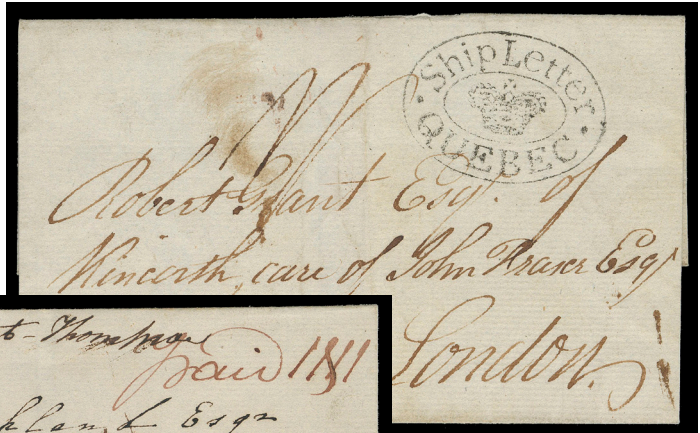 Ship Letter
QUEBEC
Robert Grant Esqr. of
Kincorth, care of John Fraser Esqr
London.
paid
Esqr